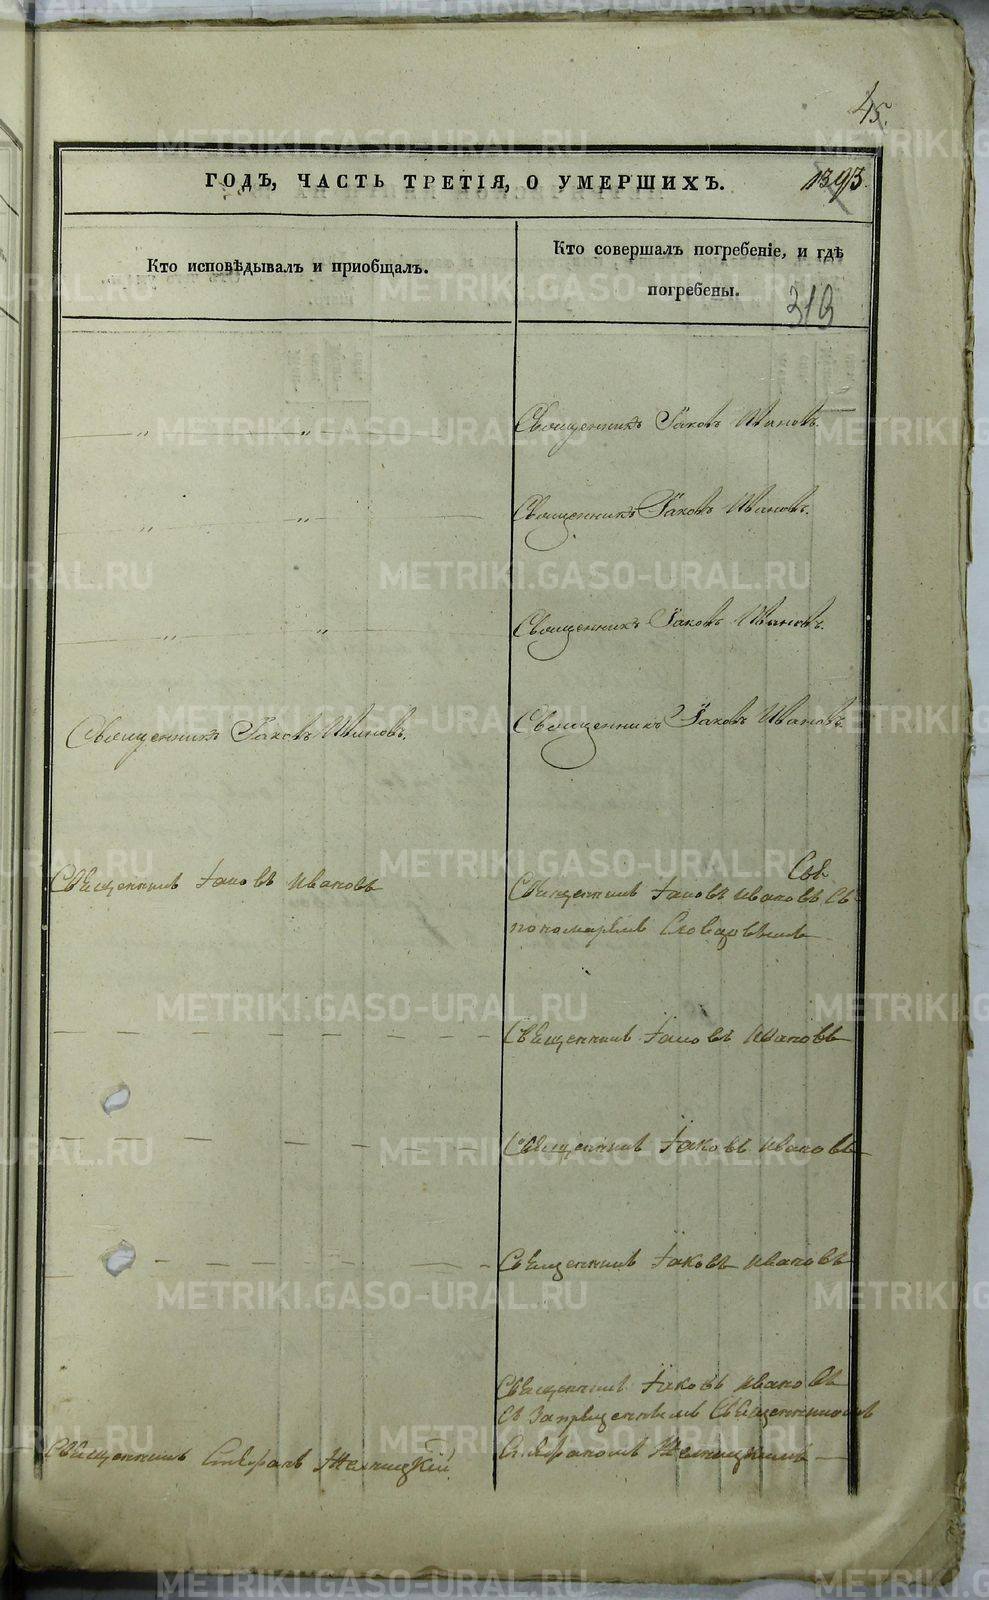 45.
ГОДЪ, ЧАСТЬ ТРЕТІЯ, О УМЕРШИХЪ. 1393.
Кто исповѣдывалъ и пріобщалъ.
Кто совершалъ погребеніе, и гдѣ
погребены.
313
„ „ Священникъ Іаковъ Ивановъ.
„ „ Священникъ Іаковъ Ивановъ.
„ „ Священникъ Іаковъ Ивановъ.
Священникъ Іаковъ Ивановъ. Священникъ Іаковъ Ивановъ.
Священникъ Іаковъ Ивановъ
Священникъ Іаковъ Ивановъ съ
пономаремъ
Священникъ Іаковъ Ивановъ
Священникъ Іаковъ Ивановъ
Священникъ Іаковъ Ивановъ
Священникъ Іаковъ Ивановъ
съ Запрещеннымъ Священникомъ
Священникъ
METRIKI.GASO-URAL.RU